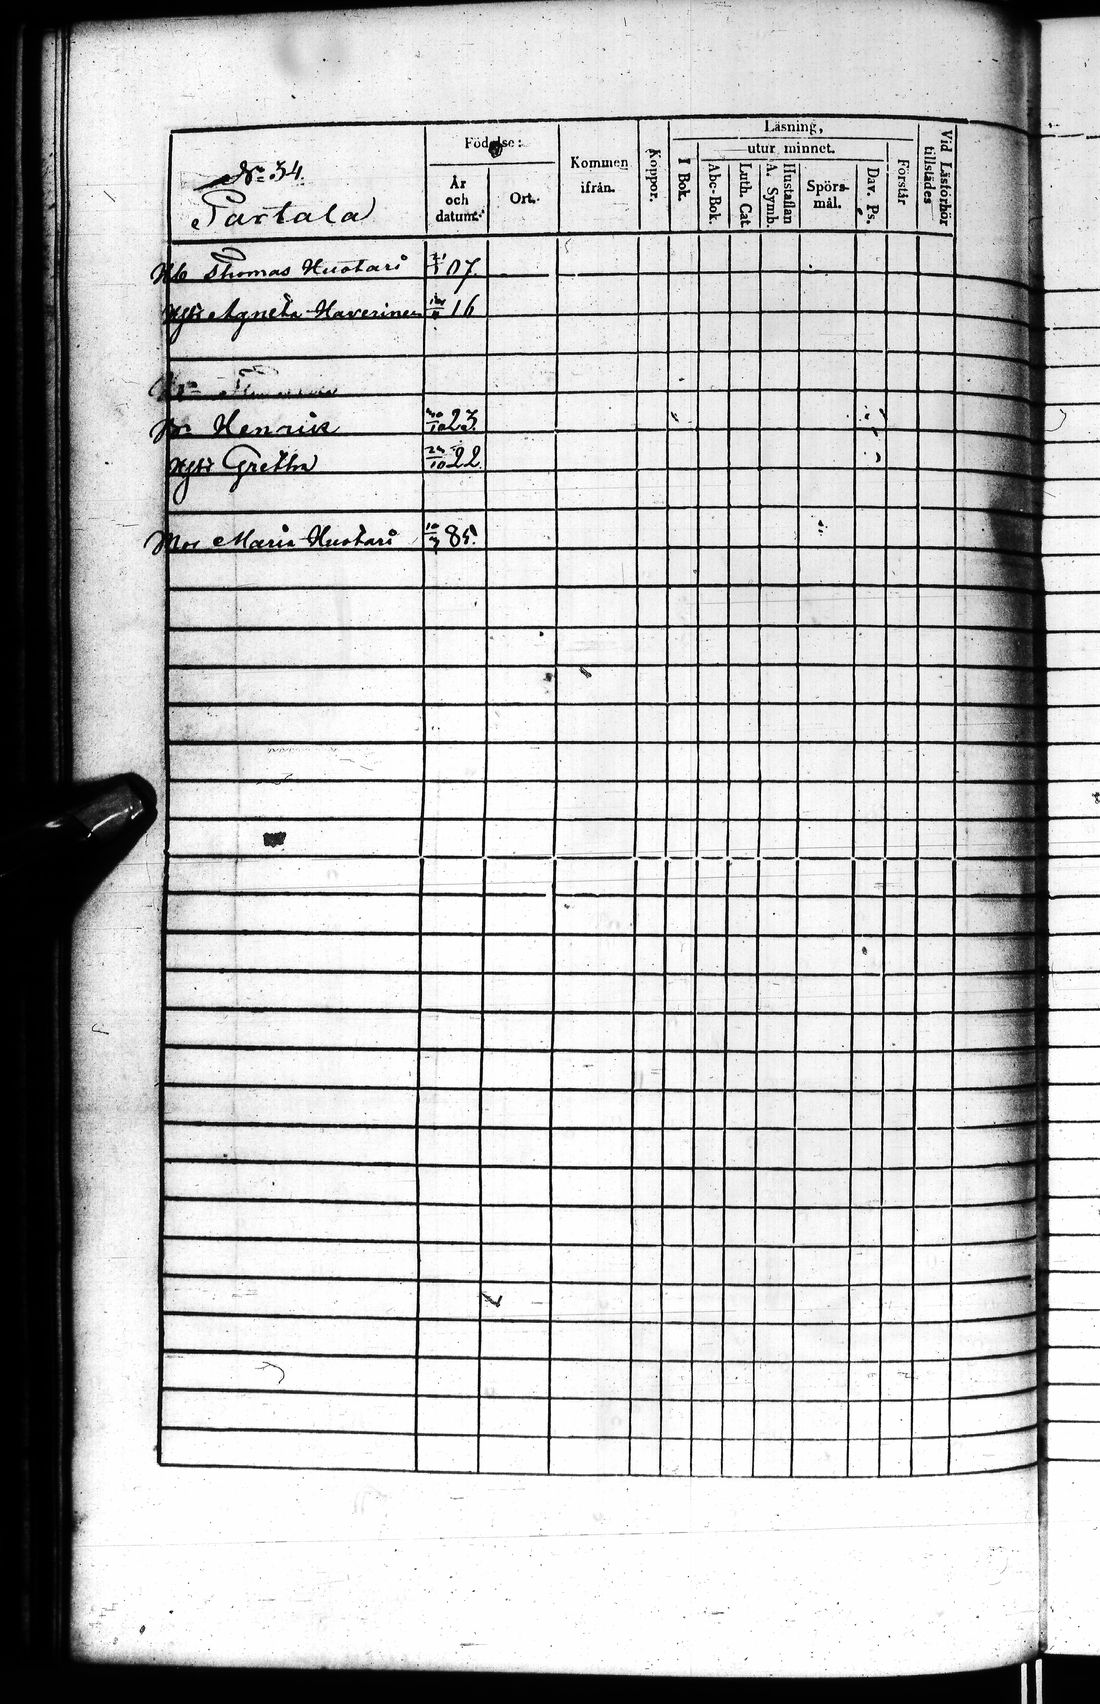 No 34.
Partala
Födelse:
År
och
datum.
Ort.
Kommen
ifrån.
Koppor.
Läsning,
utur minnet.
I Bok.
Abc-Bok.
Luth. Cat.
Hustaflan
A. Symb.
Spörs-
mål.
Dav. Ps.
Förstår
Vid Läsförhör
tillstädes
Thomas Huotari 07
Hst Agneta Haverinen 16
Br Henrik 30/10 23.
Hst Gretha 10 22.
Mor Maria Huotari 10/7 85.